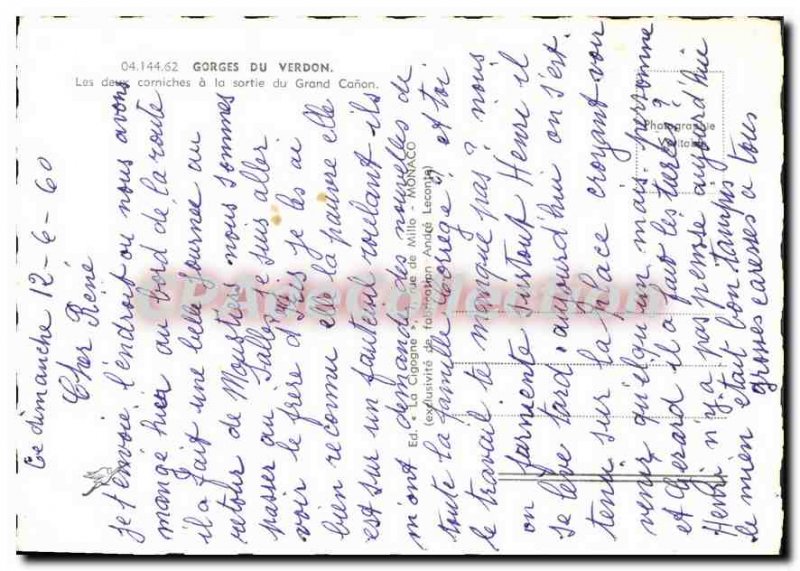 04.144.62 GORGES DU VERDON.
Les deux corniches à la sortie du Grand Cañon.
Ce dimanche 12-6-60
Cher Réné
je t'envoie l'endroit ou nous avons
mangé hier au bord de la route
il a fait une belle journée au
retour de Moustiers nous sommes
passer au Salles je suis aller
voir le frère je les ai
bien reconnu et la pauvre elle
est sur un fauteuil roulant ils
m'ont demandé des nouvelles de
toute la famille et toi
le travail te manque pas? nous
on farniente surtout Henri il
se lève tard, aujourd'hui on s'est
tenu sur la place croyant voir
venir quelqu'un mais personne
et Gérard il a fait les ?
Henri n'y a pas pensé aujourd'hui
le mien était bon tampis
grosses caresses a tous
Ed. « La Cigogne », rue de Millo - MONACO
(exclusivité de fabrication André Leconte)
Photographie
Véritable
CPAdeCollection